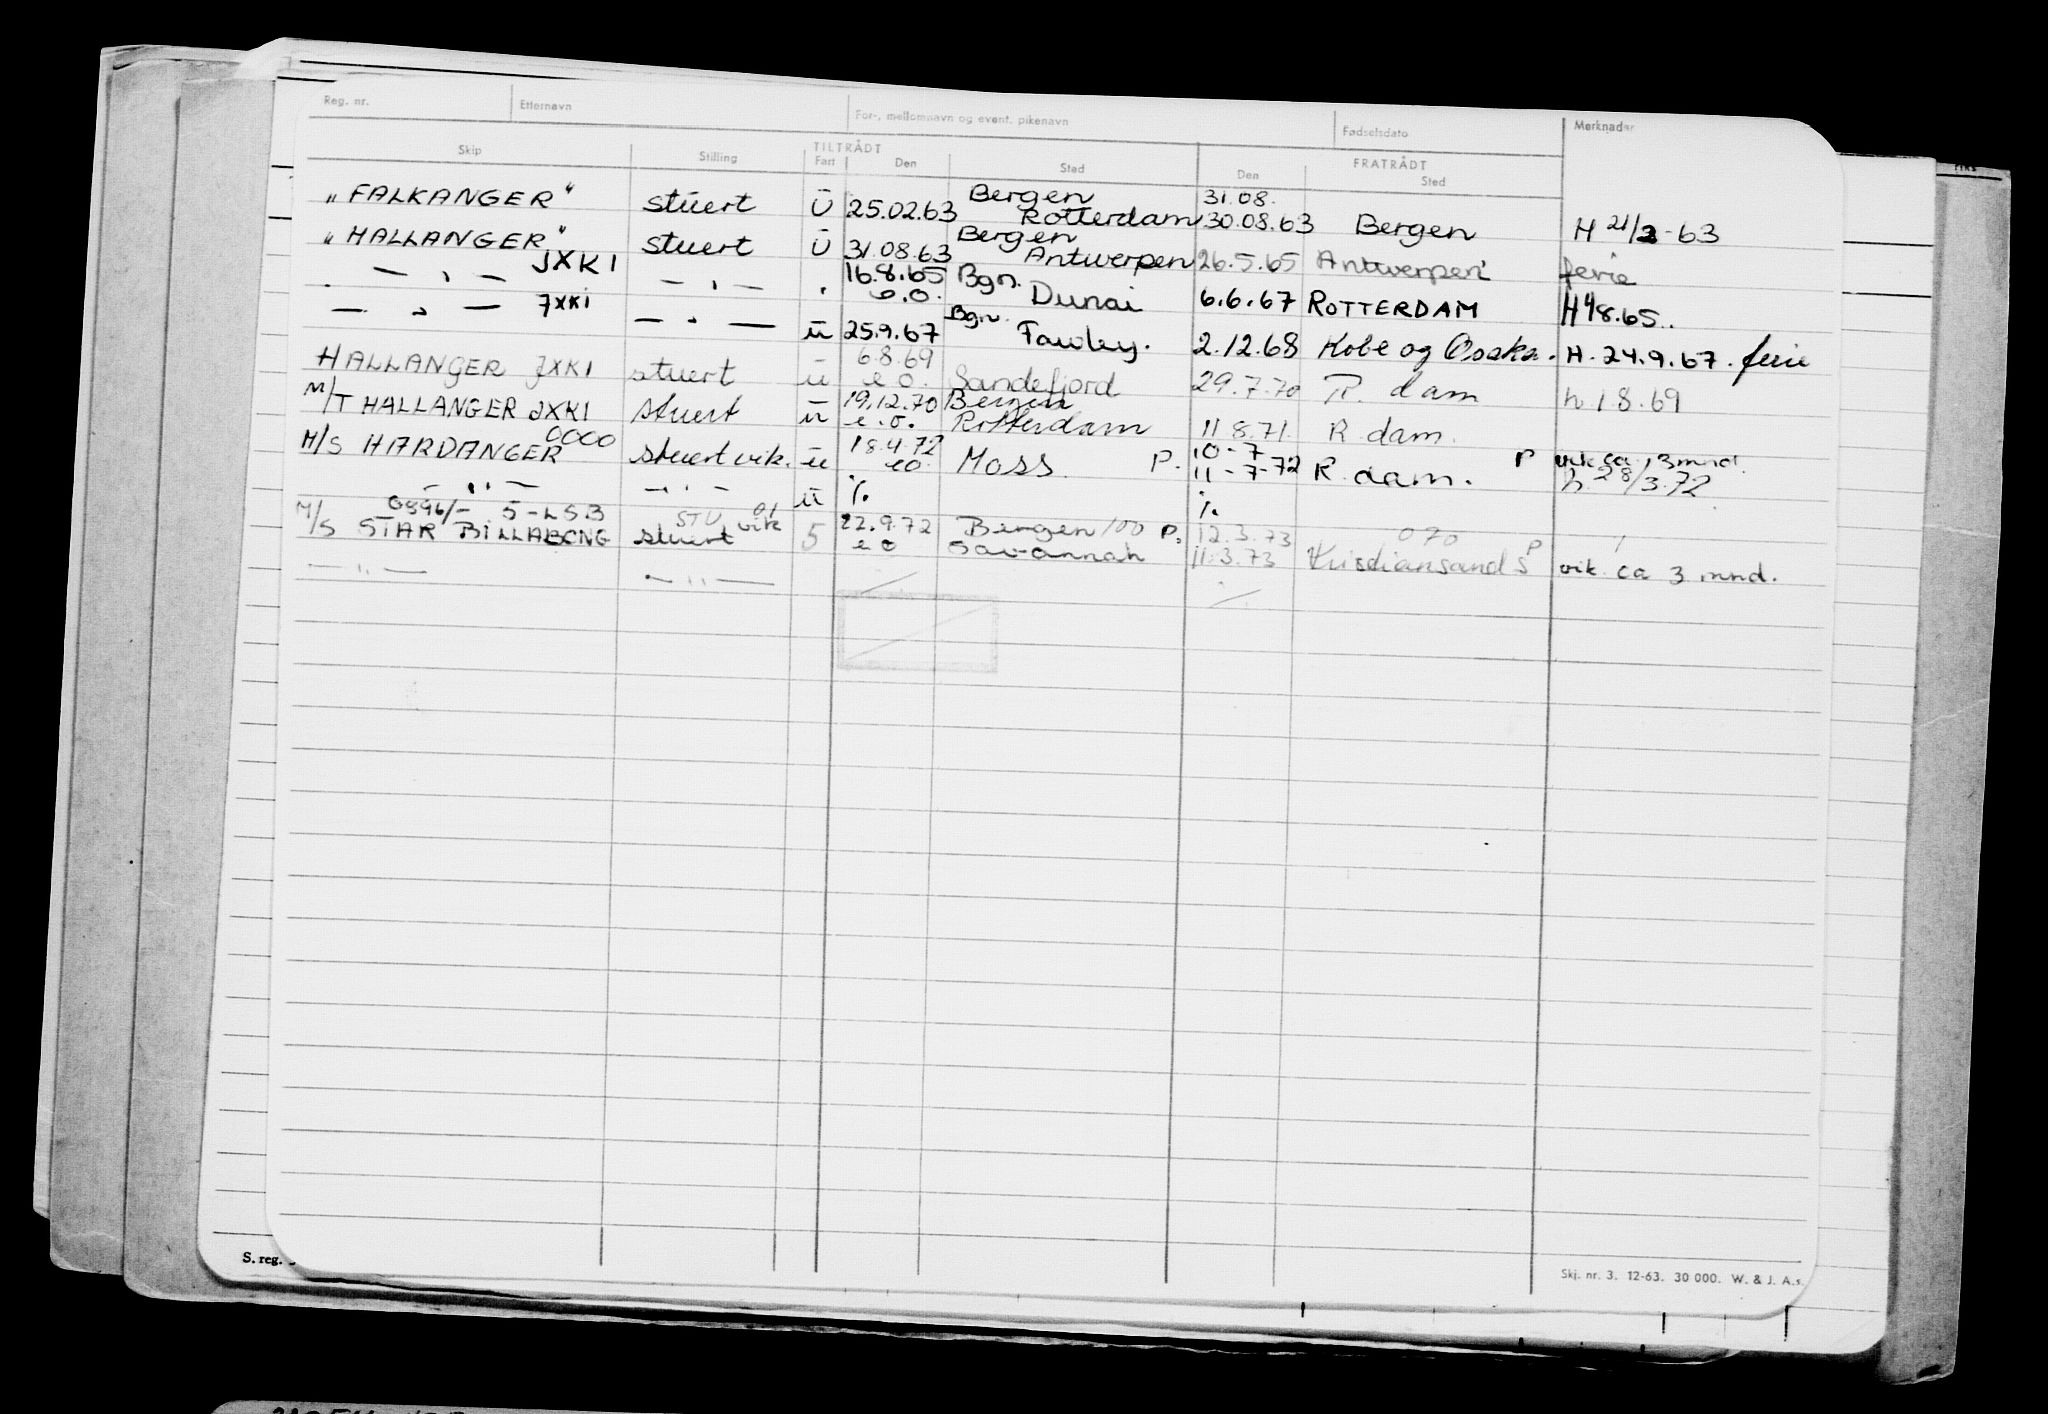 Reg. nr. Etternavn For-, mellomnavn og event. pikenavn Fødselsdato Merknader
TILTRÅDT FRATRÅDT
Skip Stilling Fart Den Sted Den Sted
Bergen 31.08.
"FALKANGER" stuert Ü 25.02.63 Rotterdam 30.08.63 Bergen H 21/2-63
Bergen
"HALLANGER" stuert Ü 31.08.63 Antwerpen 26.5.65 Antwerpen ferie
JXKI 16.8.65 Bgn.
— " — — " — " e.o. Dunai 6.6.67 ROTTERDAM H 4/8.65.
JXKI Bgn.
— " — — " — ü 25.9.67 Fawley. 2.12.68 Kobe og Osaka. H. 24.9.67. ferie
6.8.69
HALLANGER JXKI stuert ü e o. Sandefjord 29.7.70 R. dam h. 1.8.69
19.12.70 Bergen
M/T HALLANGER JXKI stuert ü e.o. Rotterdam 11 8.71. R dam.
0000 18.4.72 10-7
M/S HARDANGER stuert vik. ü eo. Moss P. 11-7-72 R dam. P vik ca. 3 mnd.
h. 28/3.72
— " — — " — ü ./. ./.
0896/- 5-LSB STU 01 22.9.72 Bergen 100 P. 12.3.73 070 P
M/S STAR BILLABONG stuert vik 5 e o Savannah 11.3.73 Kristiansand S vik ca 3 mnd.
— " — — " —
S. reg.
Skj. nr. 3. 12-63. 30 000. W. & J. A.s.